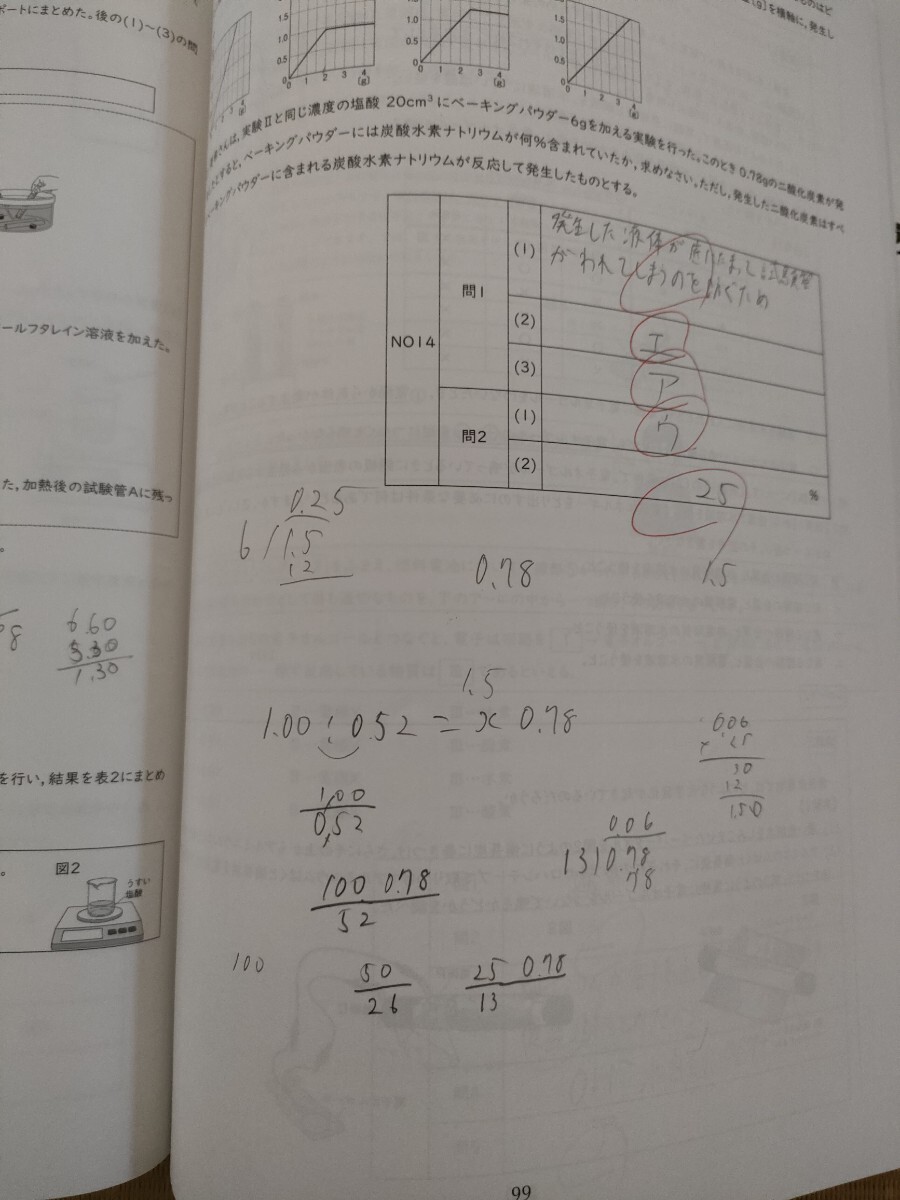 ポートにまとめた。後の(1)～(3)の問
ールフタレイン溶液を加えた。
た,加熱後の試験管Aに残っ
6.60
5.30
1.30
を行い,結果を表2にまとめ
図2
うすい
塩酸
[g]を横軸に,発生し
1.0
0.5
0
0 1 2 3 4
(g)
1.0
0.5
0
0 1 2 3 4
(g)
1.5
1.0
0.5
0
0 1 2 3 4
(g)
さんは,実験Ⅱと同じ濃度の塩酸 20cm³にベーキングパウダー6gを加える実験を行った。このとき 0.78gの二酸化炭素が発
したとすると,ベーキングパウダーには炭酸水素ナトリウムが何%含まれていたか,求めなさい。ただし,発生した二酸化炭素はすべ
ベーキングパウダーに含まれる炭酸水素ナトリウムが反応して発生したものとする。
NO14
問1
(1)
発生した液体が
がわれてしまうのを防ぐため
(2) エ
(3) ア
問2
(1) ウ
(2) 25 %
0.25
6 1.5
1.2
0.78
1.5
1.5
1.00 : 0.52 = x 0.78
1.00
0.52
0.06
13 0.78
78
0.06
25
30
12
1.50
100 0.78
52
100
50
26
25 0.78
13
99